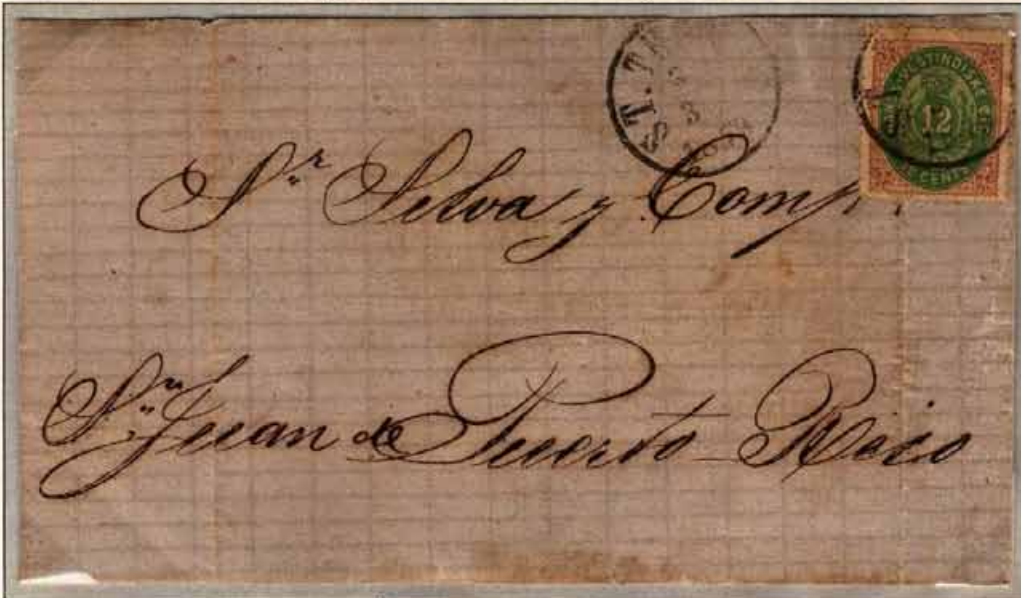 ST. T
3
VESTINDISKE
12
CENTS
Sr. Selva y Comp.
Sn. Juan de Puerto Rico